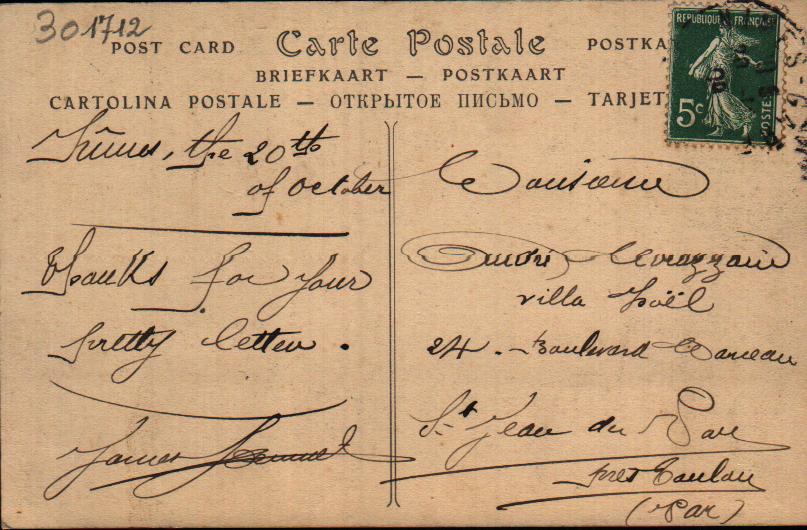 301712
POST CARD Carte Postale POSTKA
BRIEFKAART — POSTKAART
CARTOLINA POSTALE — ОТКРЫТОЕ ПИСЬМО — TARJET
REPUBLIQUE FRANÇAISE
5c
POSTES
the 20th
of October
Thanks for your
pretty letter.
James
Monsieur
André
villa Noël
24. Boulevard Marceau
St Jean du Var
près Toulon
(Var)